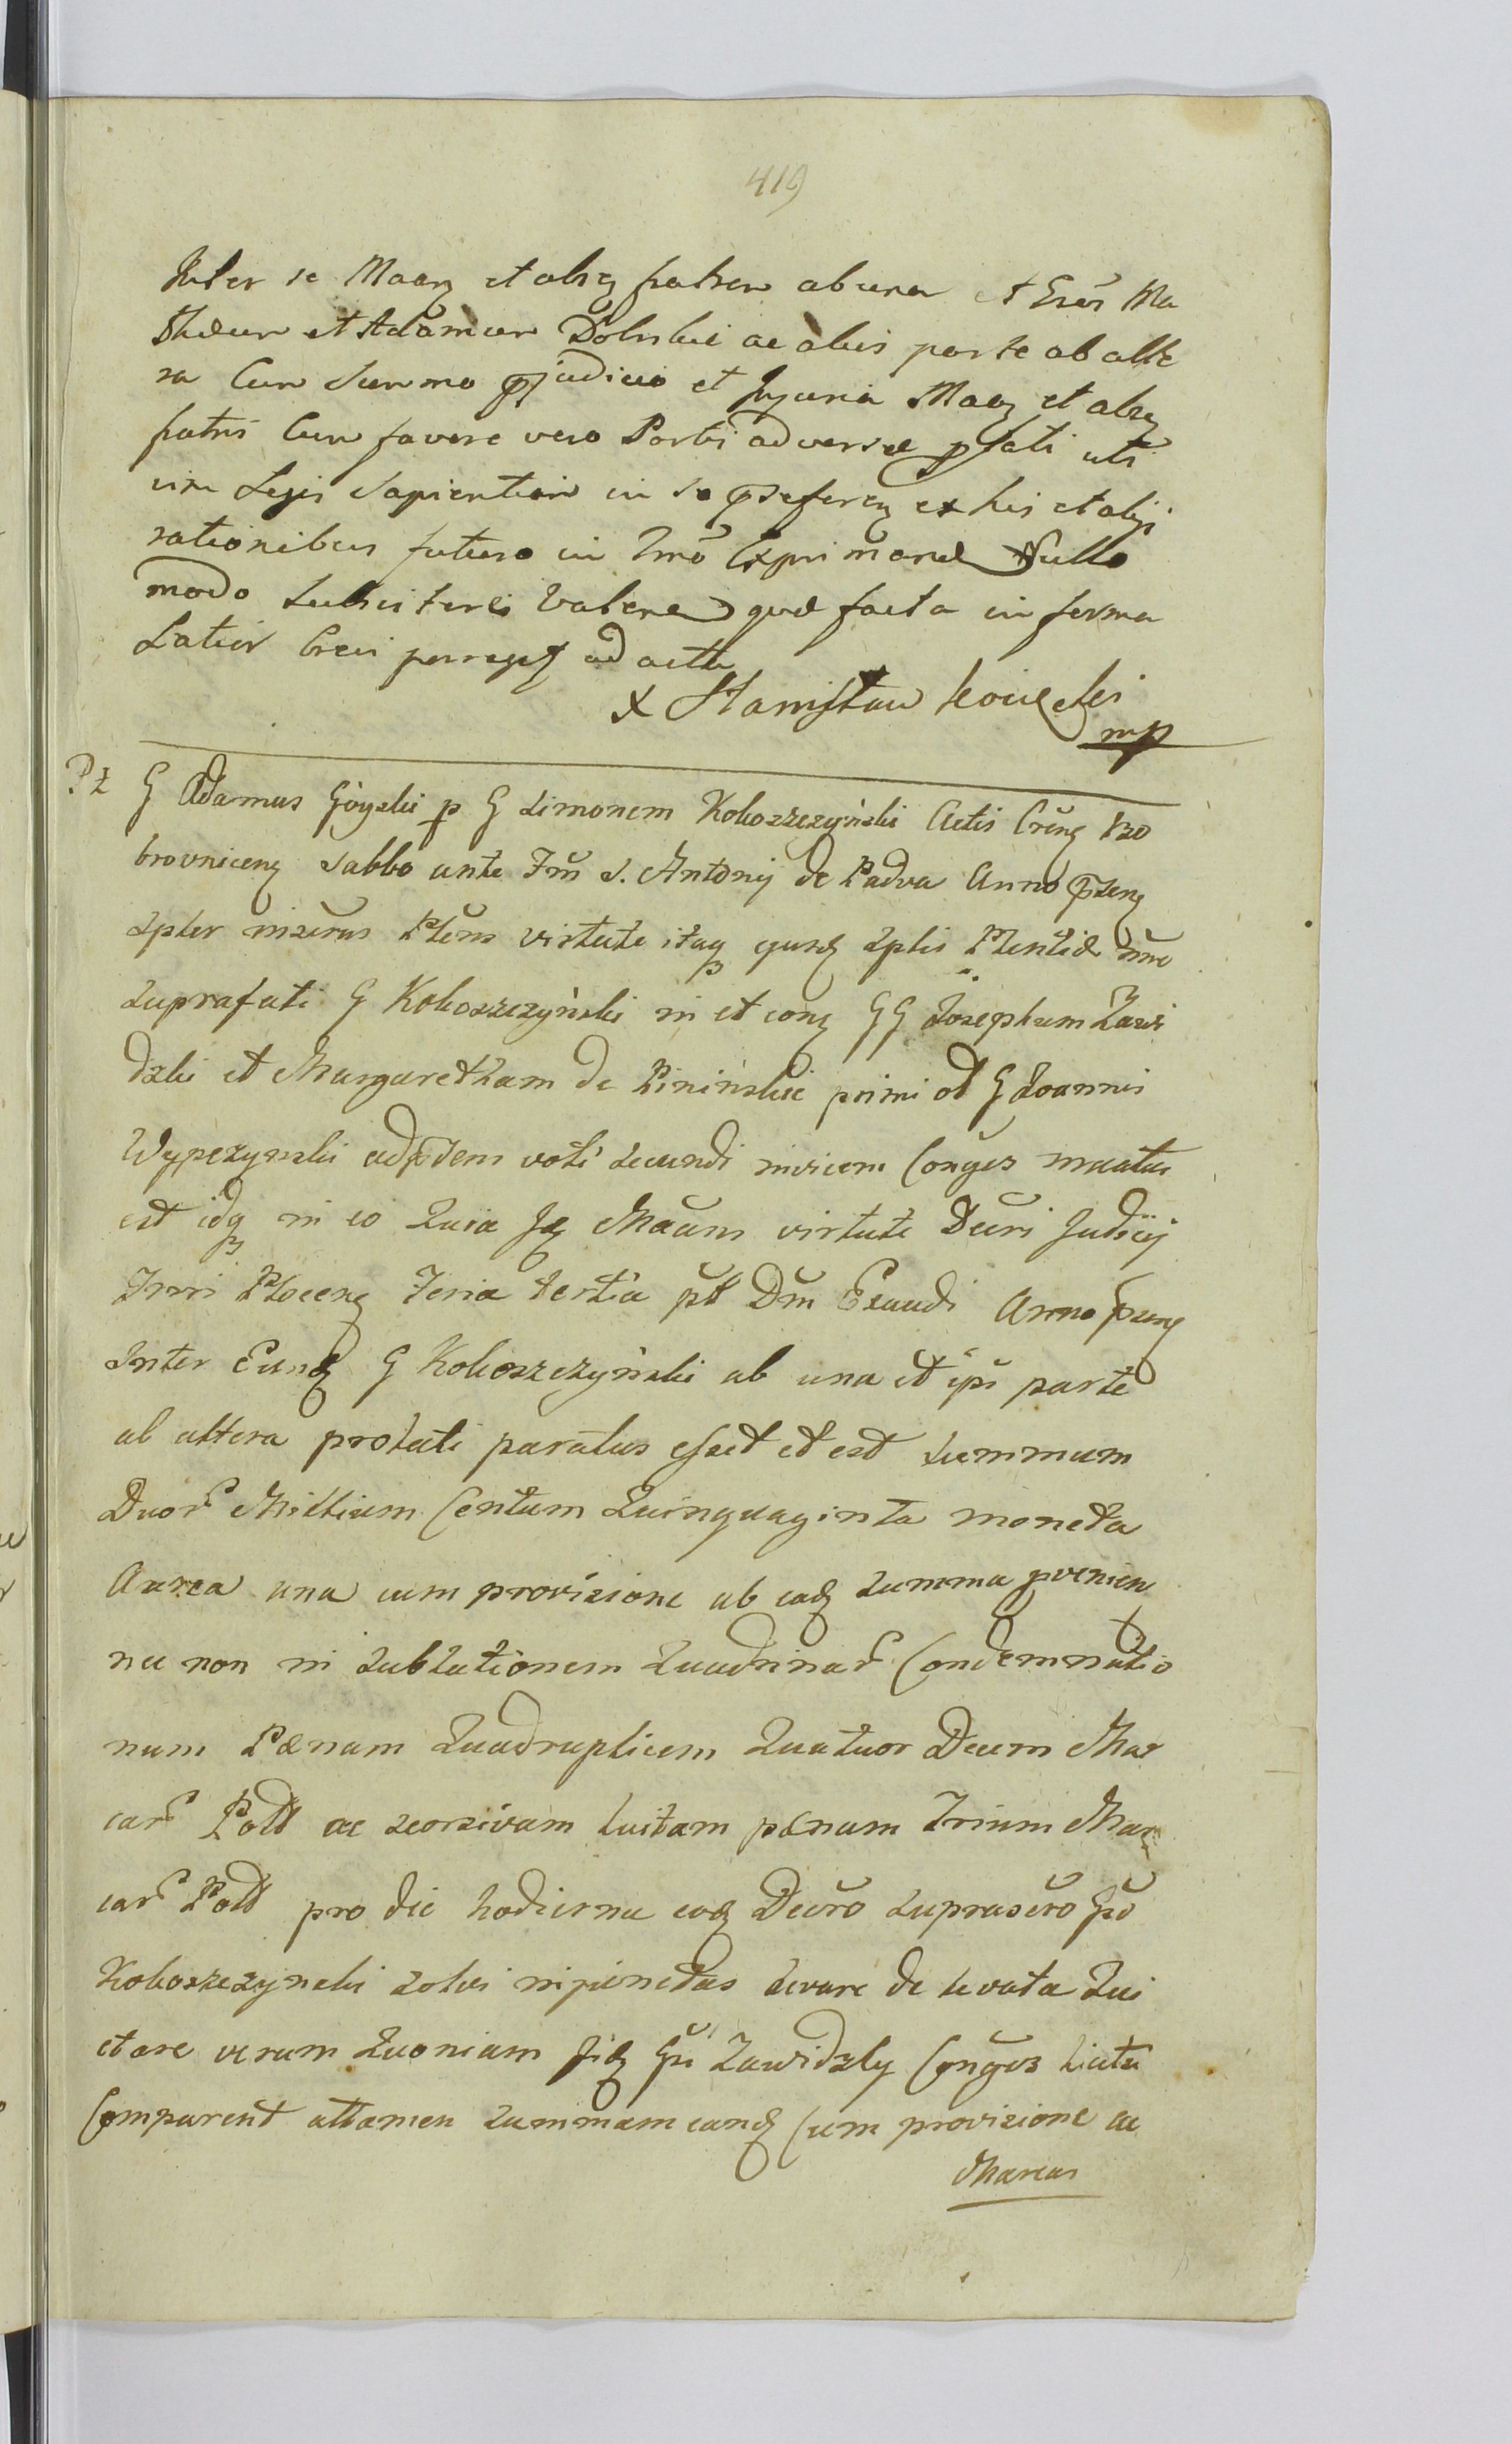 419
Inter se Maarz et alrz fratrem ab una et Grös Ma
thäum et Adamum Dolnskie ac alios parte ab alte
ra Cum summo pjudicio et Injuria Maarz et alrz
fratris Cum favore vero Partis adversæ pfati uti
viri Legis Sapientiam in se pseferenz ex his et alijs
rationibus futuro in Trmö Exprimand Nullo
modo Valere quæ facta in forma
Latiori Crari porreget ad acta
X Stanisław
mp
Pt G Adamus Góyski p G Simonem Kokoszczyński Actis Crëng Bo
brovnicenz Sabbo ante Fm S. Antonij de Padva Anno pzenz
spter miserus Plëns virtute itaq ejusd sptis Plentiæ nmö
suprafati G Kokoszczyński in et conz GG Josephum Zawi
dzki et Margaretham de Pinińskie primi ol G Joannis
Wypczynski adpdem voti secundi invicem Conğes
est idq in eo Quia Jz Maäns virtute Decri Judicij
Trri Plocenz Feria tertia pt Dm Exaudi Anno pzenz
Inter Eund G Kokoszczyński ab una et ipŝ parte
ab altera prolati paratus esset et est summam
Duorˢ Millium Centum Quinquaginta moneta
Aurea una cum provisione ab ead summa pvenien
nec non in sublationem Quadrinarˢ Condemnatio
num Pœnam Quadruplicem Quatuor Decem Mar
carˢ Poll ac seorsivam luitam pœnam Trium Mar
carˢ Poll pro die hodierna eod Decrö suprascrö Gsö
Kokoszczynski solvi inpœnetas levare de levata Qui
etare verum Quoniam Jid Gsi Zawidzky Conğes licita
Comparent attamen summam eand Cum provisione ac
Marcas